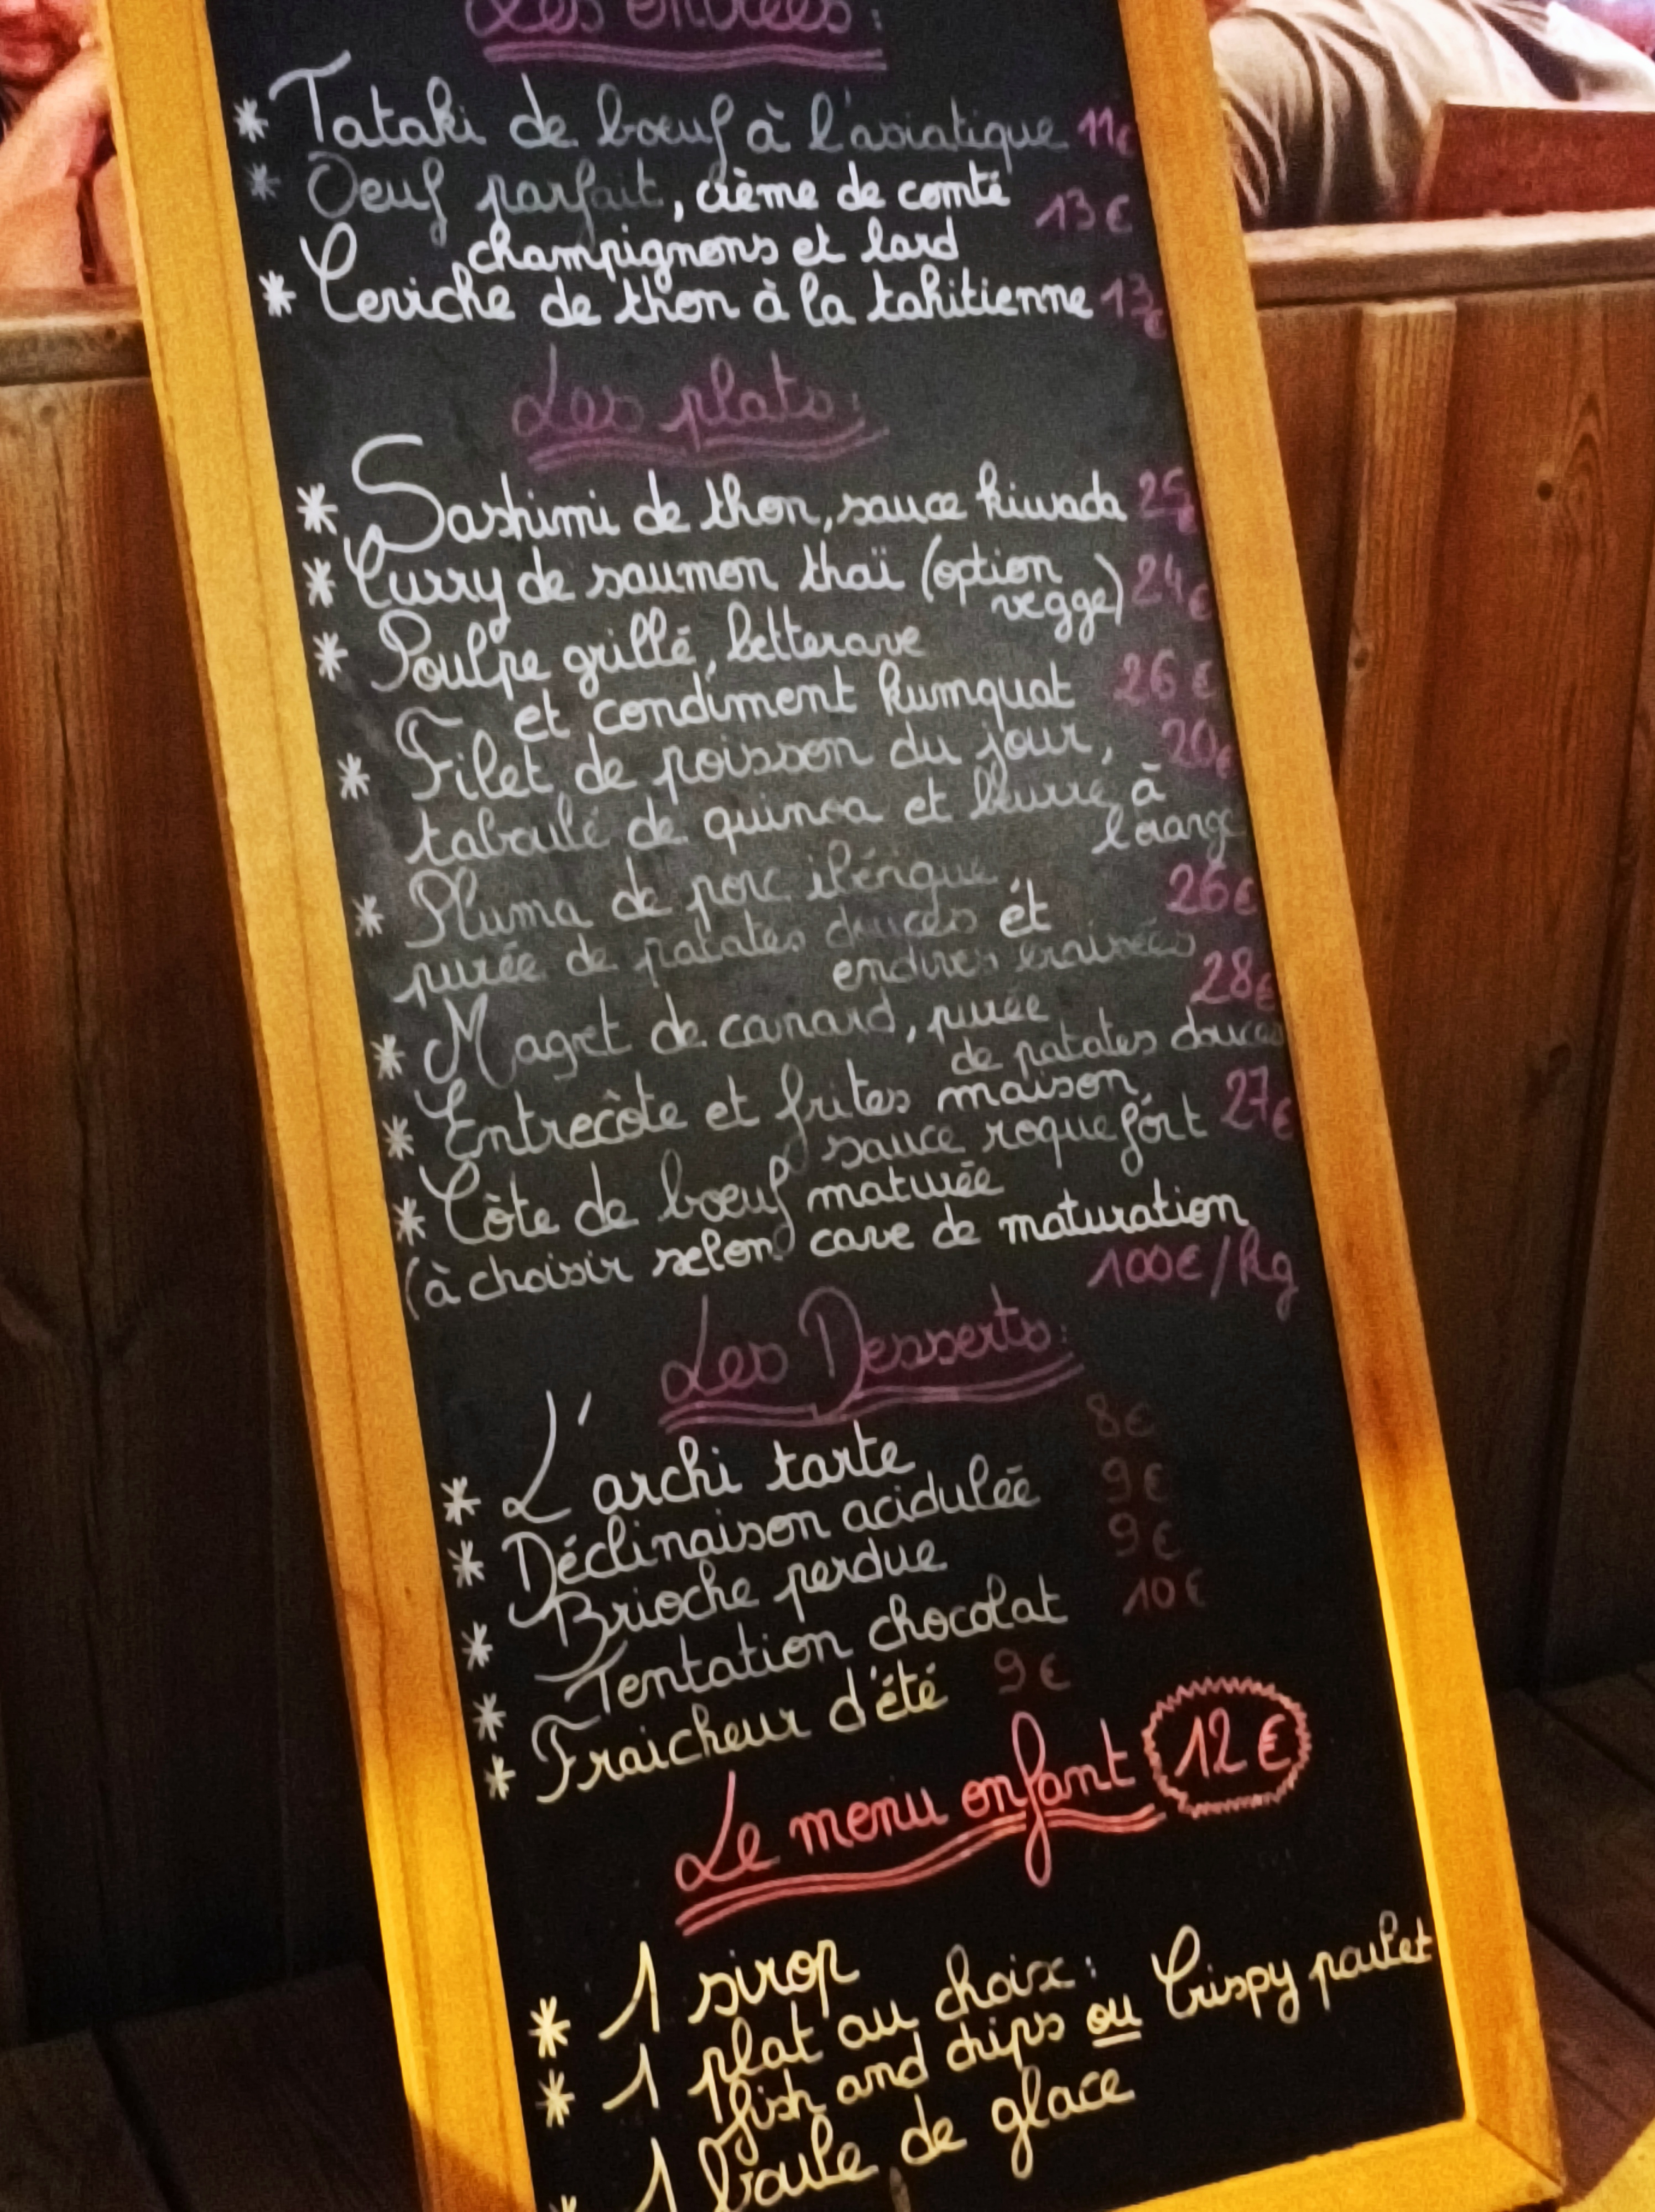 Les entrées :
* Tataki de bœuf à l'asiatique 11€
* Oeuf parfait, crème de comté 13€
champignons et lard
* Ceviche de thon à la tahitienne 13€
Les plats :
* Sashimi de thon, sauce kiwada 25€
* Curry de saumon thaï (option 24€
vegge)
* Poulpe grillé, betterave
et condiment kumquat 26€
* Filet de poisson du jour, 20€
taboulé de quinoa et beurre à
l'orange
* Pluma de porc ibérique, 26€
purée de patates douces et
endives braisées
* Magret de canard, purée 28€
de patates douces
* Entrecôte et frites maison, 27€
sauce roquefort
* Côte de bœuf maturée
(à choisir selon cave de maturation
100€/kg
Les Desserts :
* L'archi tarte 8€
* Déclinaison acidulée 9€
* Brioche perdue 9€
* Tentation chocolat 10€
* Fraicheur d'été 9€
Le menu enfant 12€
* 1 sirop
* 1 plat au choix :
fish and chips ou Crispy poulet
* 1 boule de glace